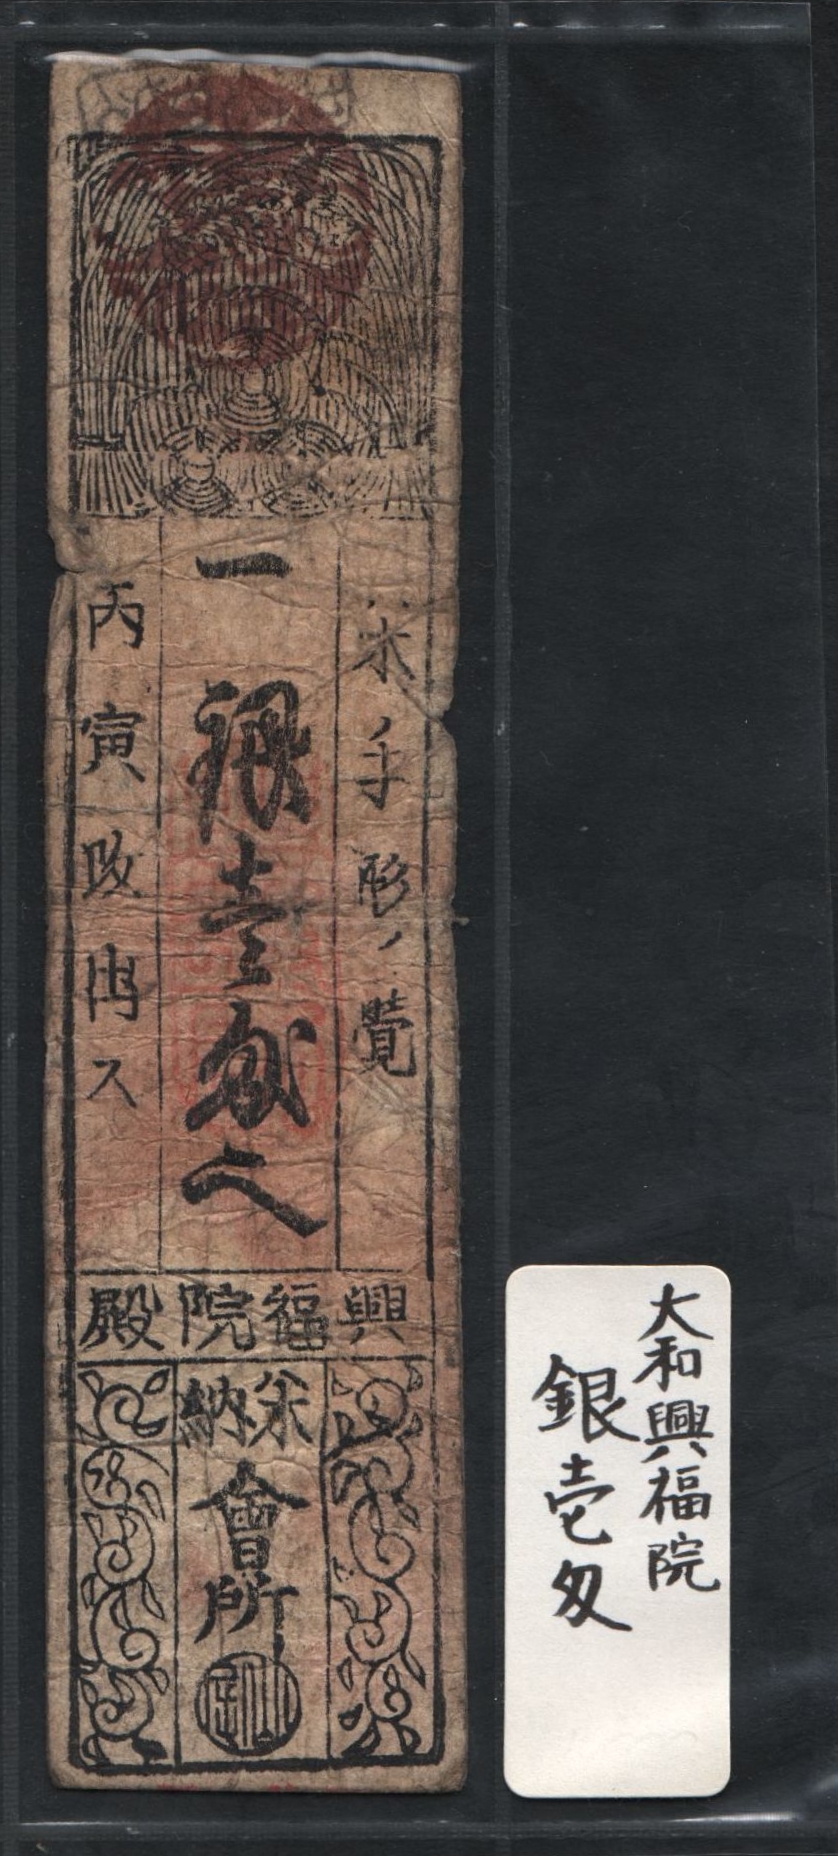 米ノ手形ノ覚
一銀壹匁也
丙寅改出ス
興福院殿
米納
會所
大和興福院
銀壱匁